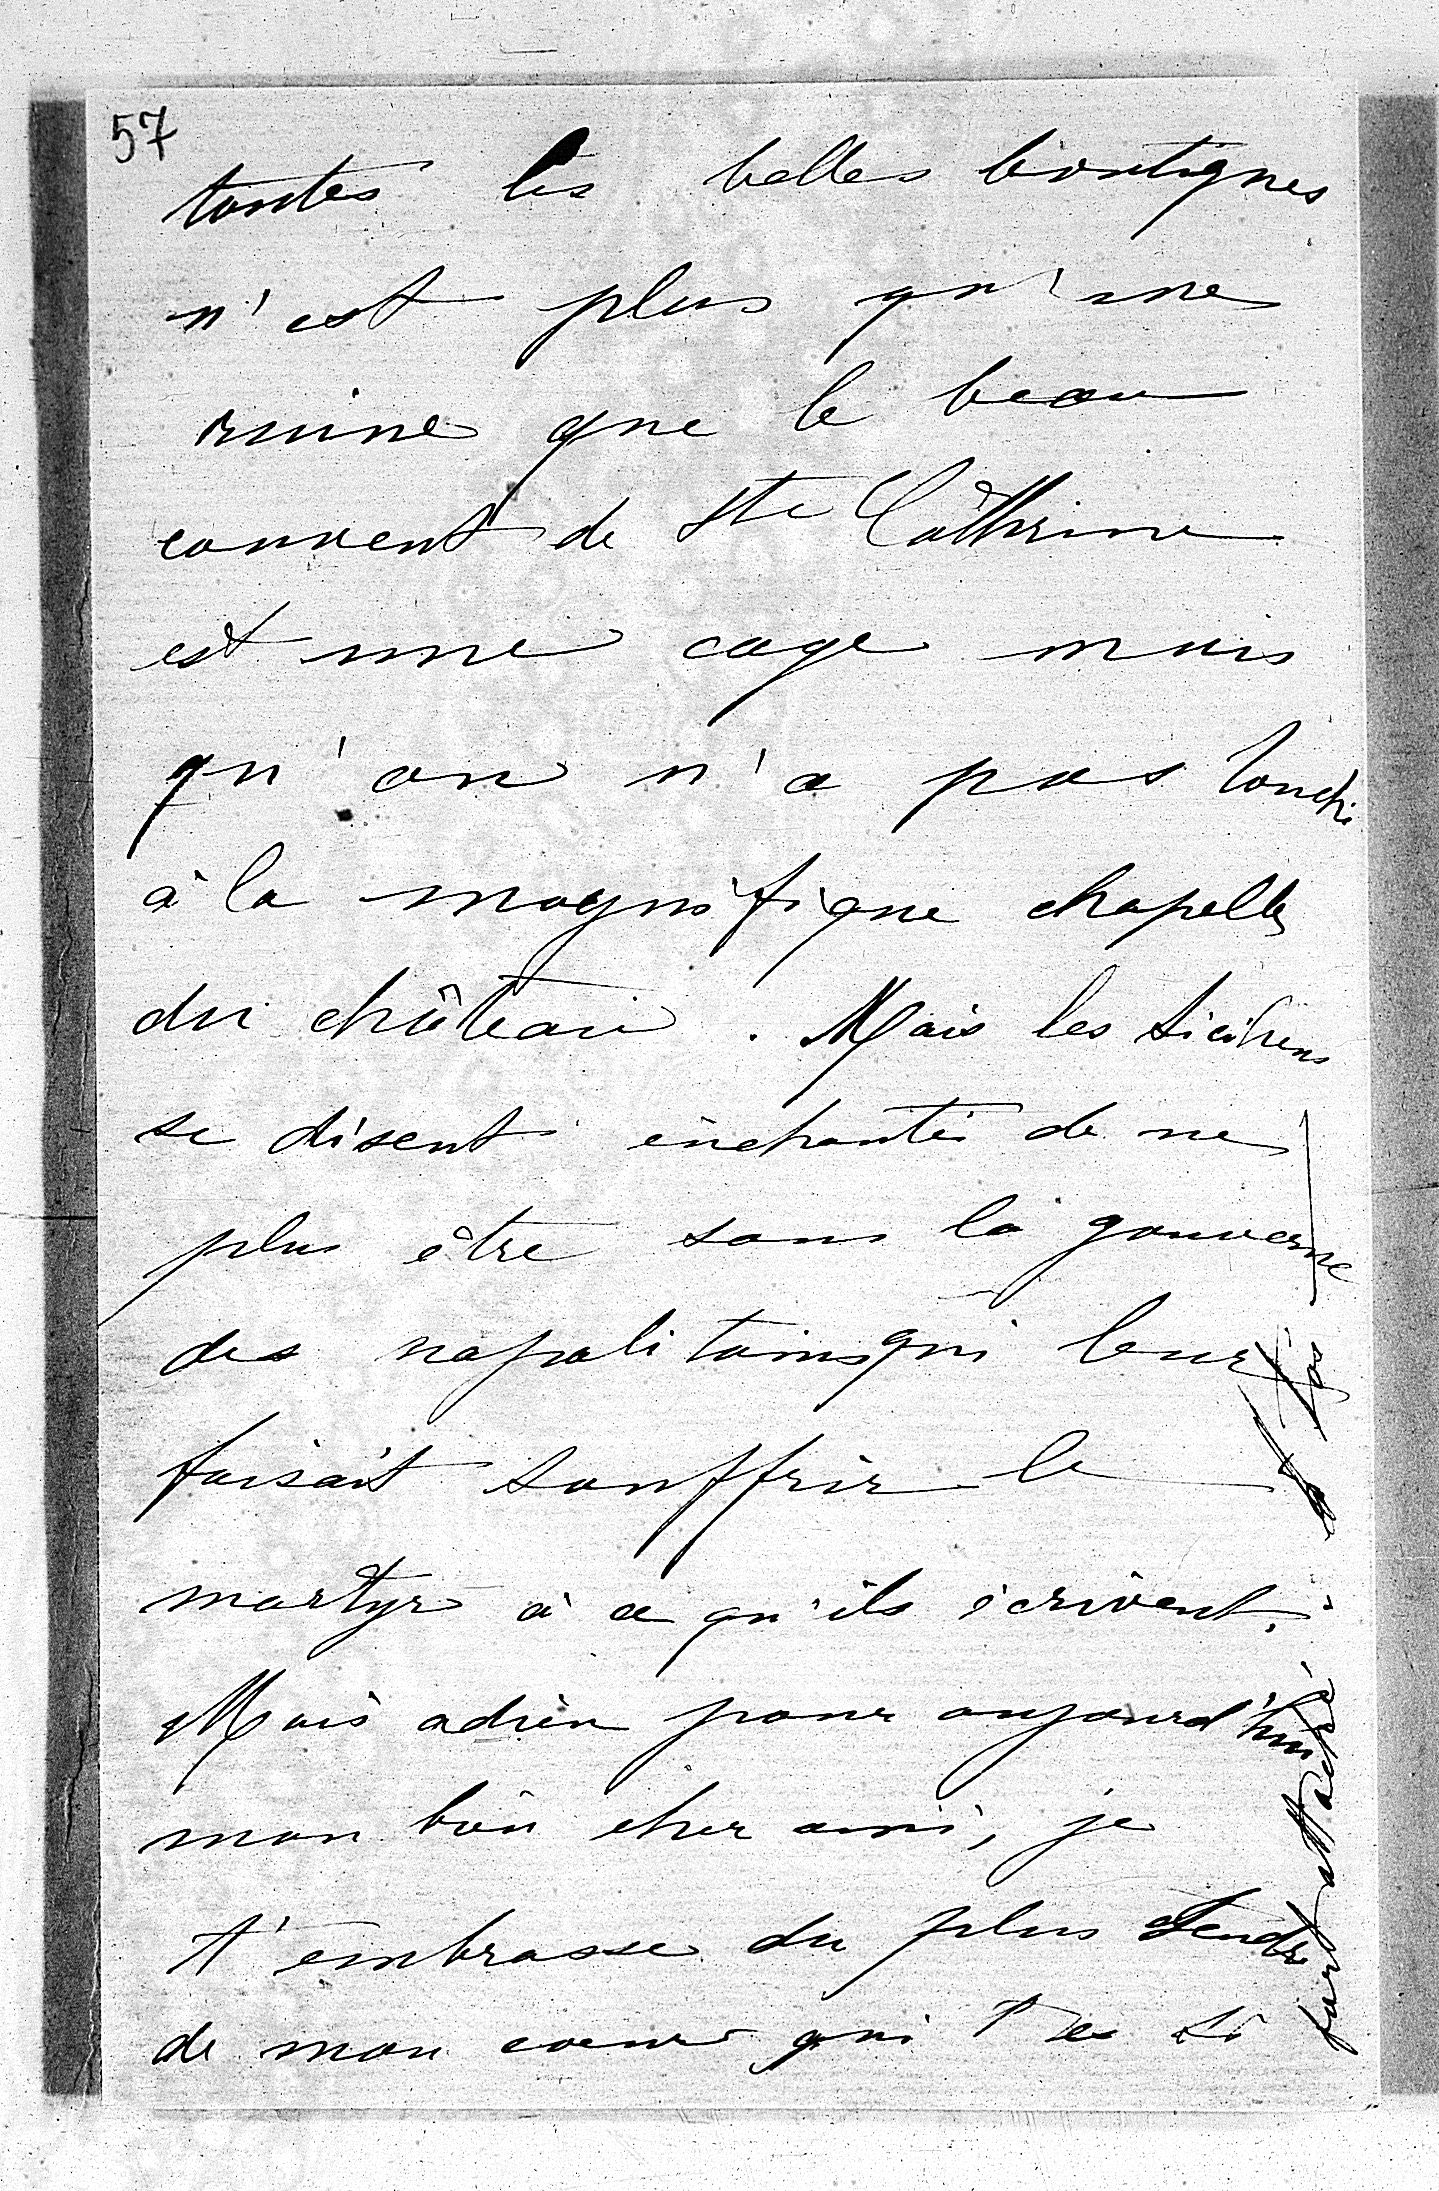 57
toutes les belles boutiques
n'est plus qu'une
ruine que le beau
couvent de Ste Cathrine
est une cage mais
qu'on n'a pas touché
à la magnifique chapelle
du château. Mais les siciliens
se disent enchantés de ne
plus être sous la gouverne
des napolitains qui leur
faisait souffrir le
martyr à ce qu'ils écrivent.
Mais adieu pour aujourd'hui
mon bien cher ami, je
t'embrasse du plus tendre
de mon coeur qui t'es si
fort attaché